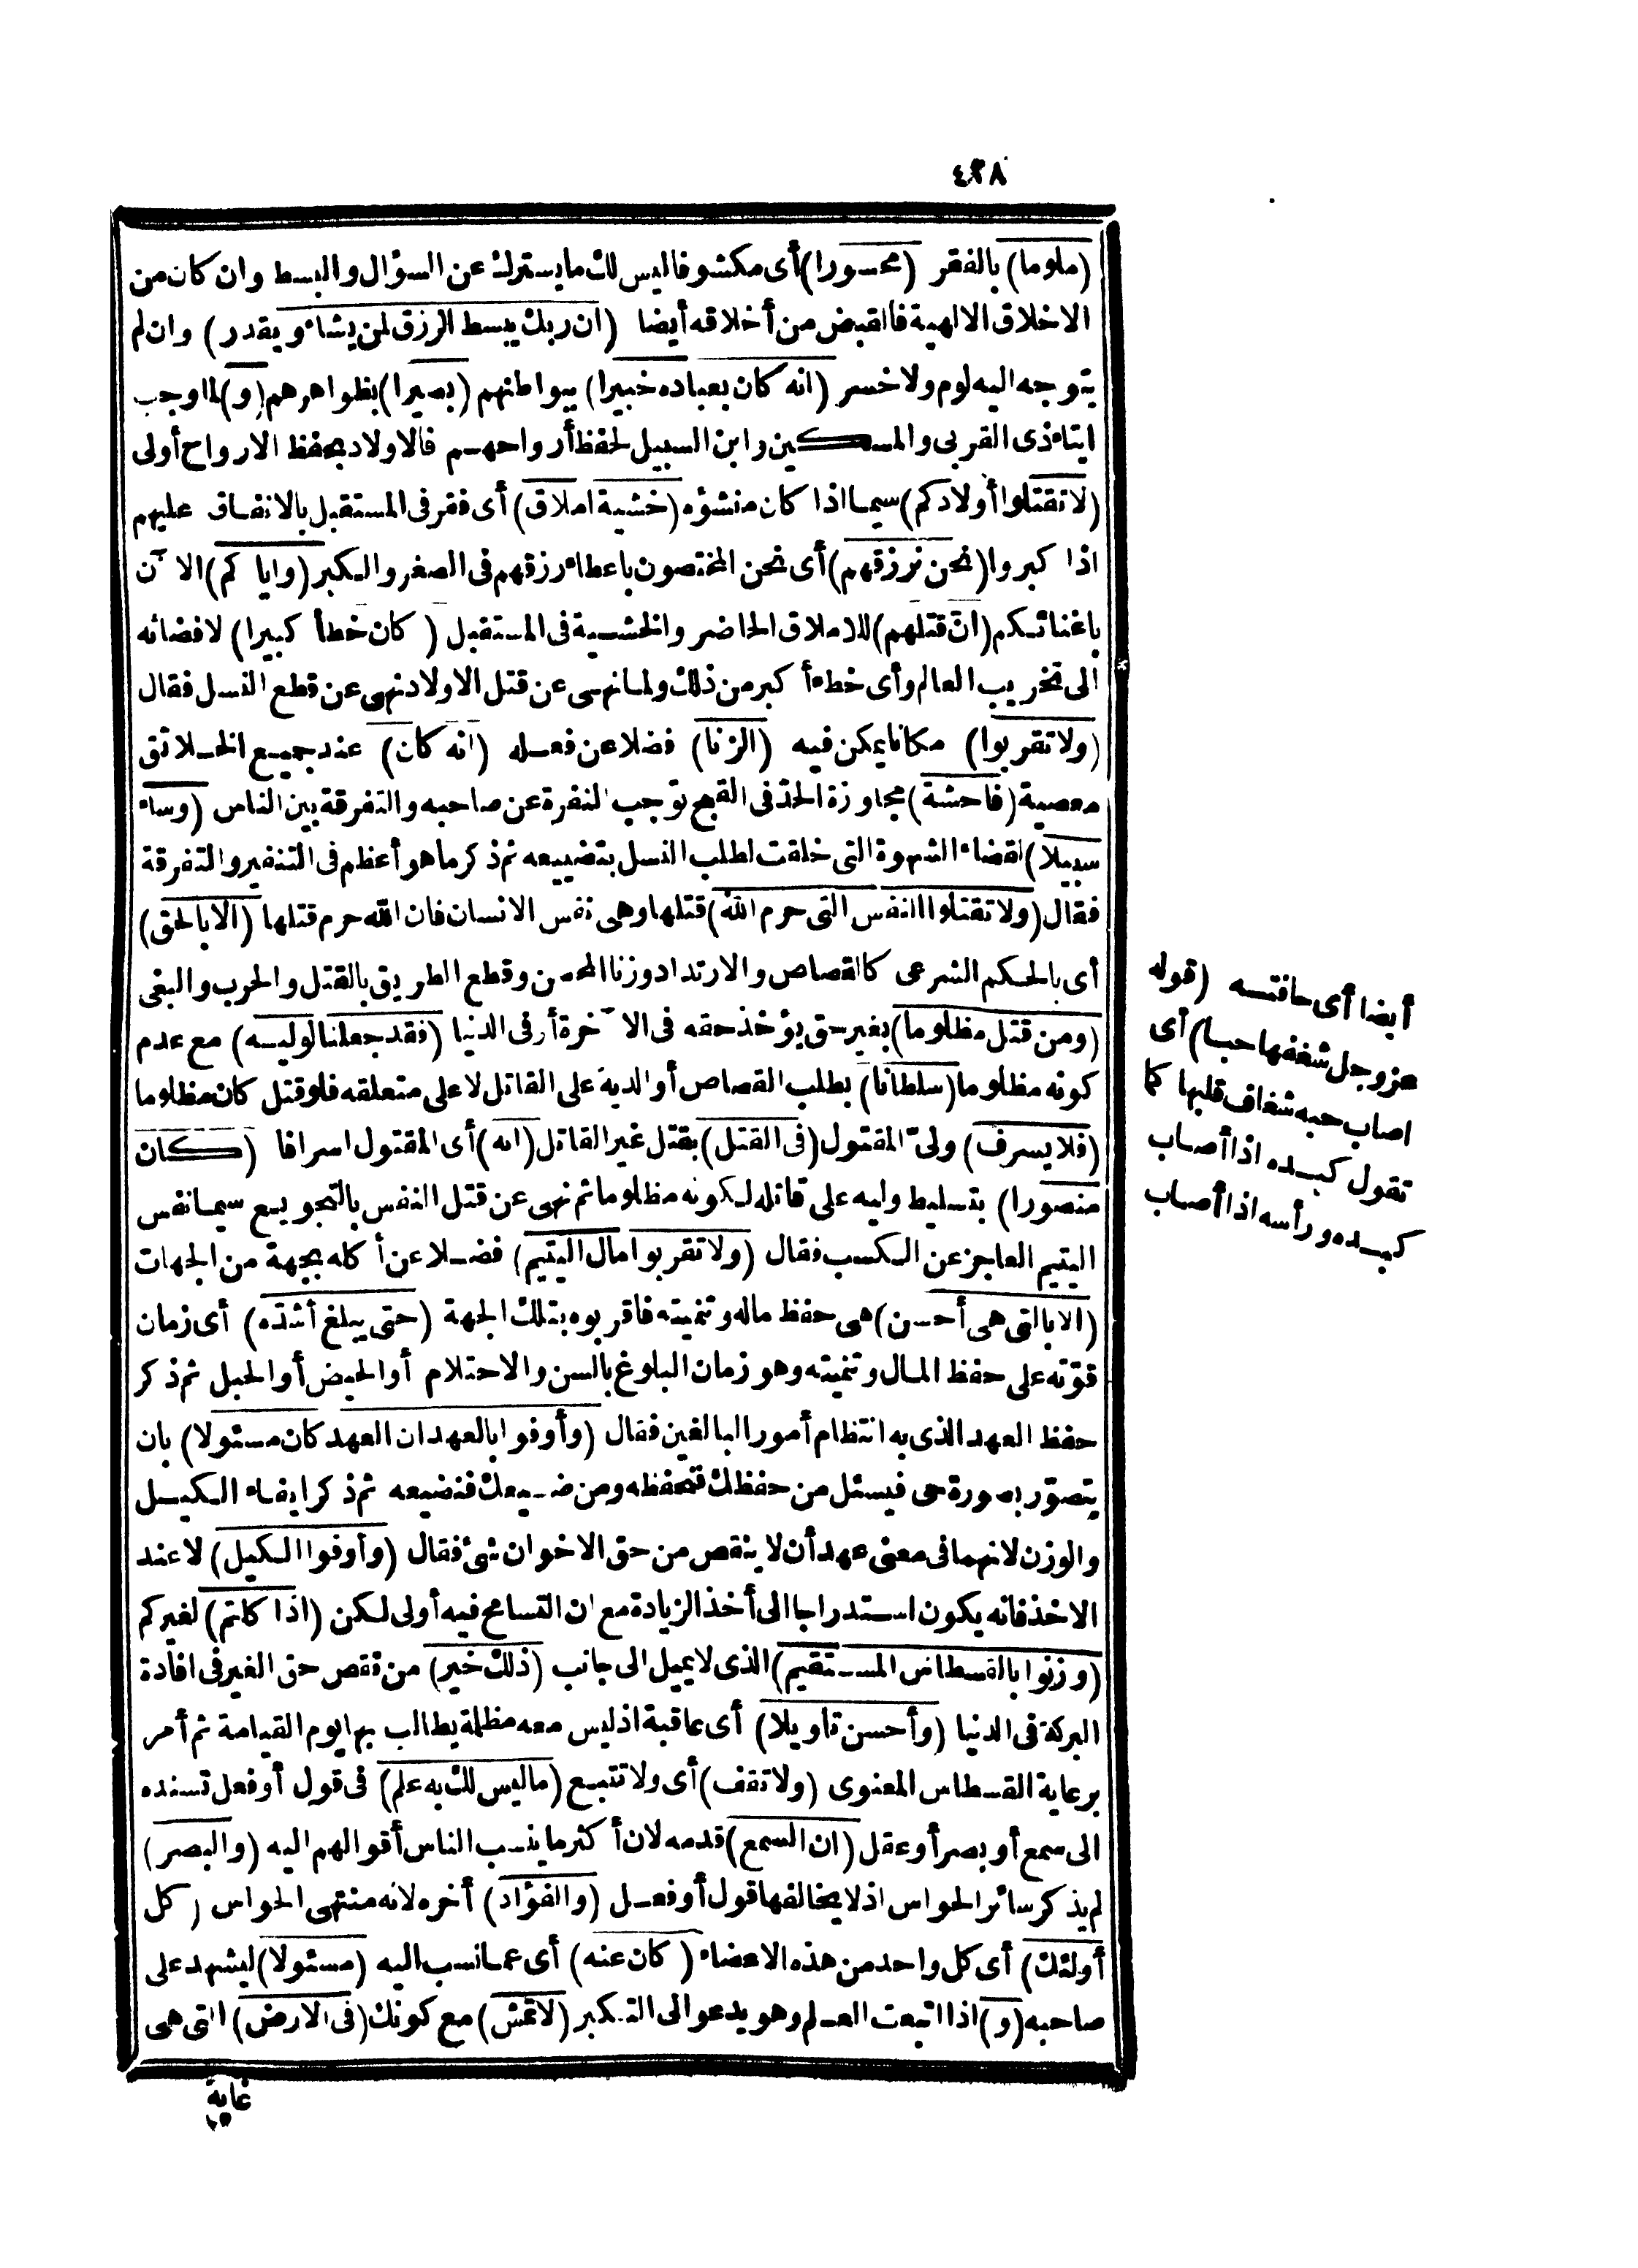 ٤٢٨
(ملوما) بالفقر (محسورا) أى مكشوفا ليس لك ما يسترك عن السؤال والبسط وان كان من
الاخلاق الالهية فالقبض من أخلاقه أيضا (ان ربك يبسط الرزق لمن يشاء ويقدر) وان لم
يتوجه اليه لوم ولا خسر (انه كان بعباده خبيرا) ببواطنهم (بصيرا) بظواهرهم (و) لما اوجب
ايتاء ذى القربى والمسكين وابن السبيل لحفظ أرواحهم فالاولاد بحفظ الارواح أولى
(لا تقتلوا أولادكم) سيما اذا كان منشؤه (خشية املاق) أى فقر فى المستقبل بالانفاق عليهم
اذا كبروا (نحن نرزقهم) أى نحن المختصون باعطاء رزقهم فى الصغر والكبر (واياكم) الآن
باغنائكم (انّ قتلهم) للاملاق الحاضر والخشية فى المستقبل (كان خطأ كبيرا) لافضائه
الى تخريب العالم وأى خطء أكبر من ذلك ولما نهى عن قتل الاولاد نهى عن قطع النسل فقال
(ولا تقربوا) مكانا يمكن فيه (الزنا) فضلا عن فعله (انه كان) عند جميع الخلائق
معصية (فاحشة) مجاوزة الحدّ فى القبح توجب النفرة عن صاحبه والتفرقة بين الناس (وساء
سبيلا) لقضاء الشهوة التى خلقت لطلب النسل بتضييعه ثم ذكر ما هو أعظم فى التنفير والتفرقة
فقال (ولا تقتلوا النفس التى حرم الله) قتلها وهى نفس الانسان فان الله حرم قتلها (الا بالحق)
أى بالحكم الشرعى كالقصاص والارتداد وزنا المحصن وقطع الطريق بالقتل والحرب والبغى
(ومن قتل مظلوما) بغير حق يؤخذ حقه فى الآخرة أو فى الدنيا (فقد جعلنا لوليه) مع عدم
كونه مظلوما (سلطانا) بطلب القصاص أو الدية على القاتل لا على متعلقه فلو قتل كان مظلوما
(فلا يسرف) ولىّ المقتول (فى القتل) بقتل غير القاتل (انه) أى المقتول اسرافا (كان
منصورا) بتسليط وليه على قاتله لكونه مظلوما ثم نهى عن قتل النفس بالتجويع سيما نفس
اليتيم العاجز عن الكسب فقال (ولا تقربوا مال اليتيم) فضلا عن أكله بجهة من الجهات
(الا بالتى هى أحسن) هى حفظ ماله وتنميته فاقربوه بتلك الجهة (حتى يبلغ أشدّه) أى زمان
قوّته على حفظ المال وتنميته وهو زمان البلوغ بالسن والاحتلام أو الحيض أو الحبل ثم ذكر
حفظ العهد الذى به انتظام أمور البالغين فقال (وأوفوا بالعهد ان العهد كان مسئولا) بان
يتصوّر بصورة حى فيسئل من حفظك فتحفظه ومن ضيعك فتضيعه ثم ذكر ايفاء الكيل
والوزن لانهما فى معنى عهد أن لا ينقص من حق الاخوان شئ فقال (وأوفوا الكيل) لا عند
الاخذ فانه يكون استدراجا الى أخذ الزيادة مع ان التسامح فيه أولى لكن (اذا كلتم) لغيركم
(وزنوا بالقسطاس المستقيم) الذى لا يميل الى جانب (ذلك خير) من نقص حق الغير فى افادة
البركة فى الدنيا (وأحسن تاويلا) أى عاقبة اذ ليس معه مظلمة يطالب بها يوم القيامة ثم أمر
برعاية القسطاس المعنوى (ولا تقف) أى ولا تتبع (ما ليس لك به علم) فى قول أو فعل تسنده
الى سمع أو بصر أو عقل (ان السمع) قدمه لان أكثر ما ينسب الناس أقوالهم اليه (والبصر)
لم يذكر سائر الحواس اذ لا يخالفها قول أو فعل (والفؤاد) أخره لانه منتهى الحواس (كل
أولئك) أى كل واحد من هذه الاعضاء (كان عنه) أى عما نسب اليه (مسئولا) ليشهد على
صاحبه (و) اذا اتبعت العلم وهو يدعو الى التكبر (لا تمش) مع كونك (فى الارض) التى هى
غاية
أيضا أى حافته (قوله
عز وجل شغفها حبا) أى
اصاب حبه شغاف قلبها كما
تقول كبده اذا أصاب
كبده ورأسه اذا أصاب